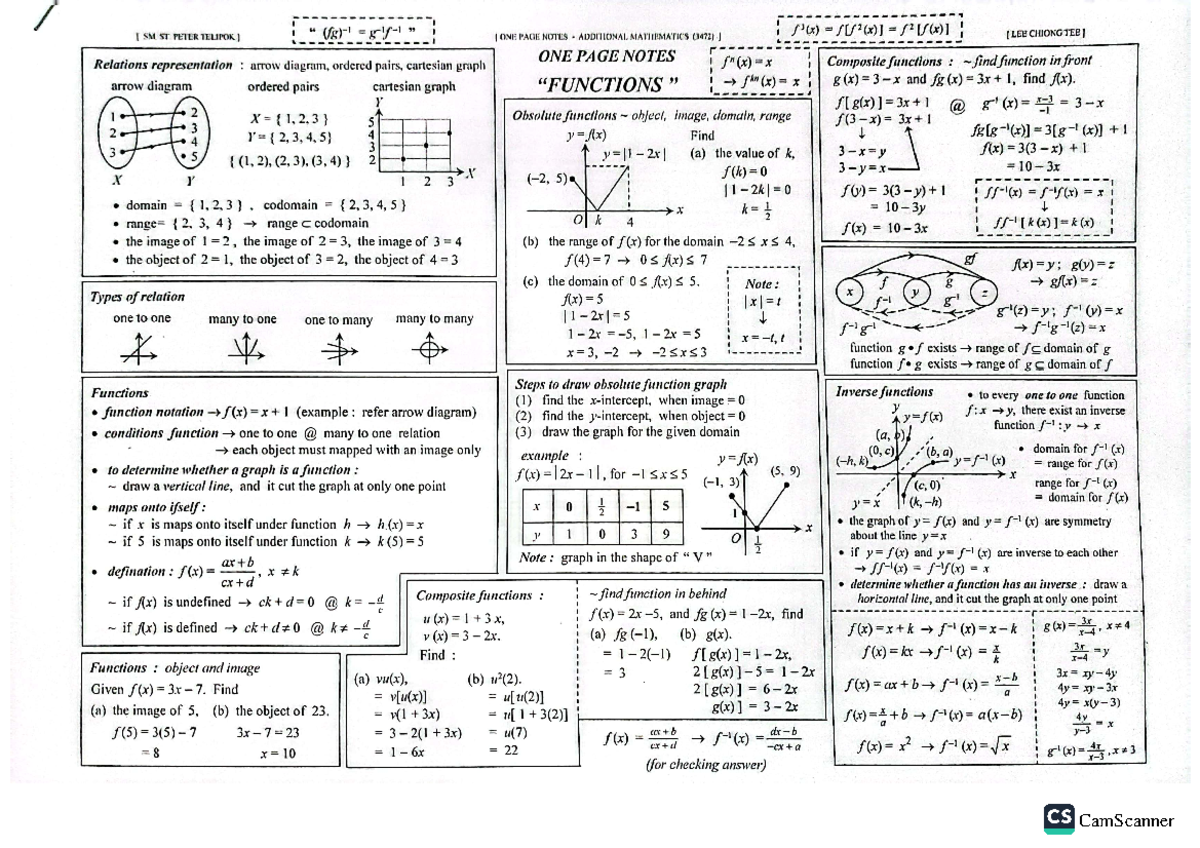 [ SM ST. PETER TELIPOK ]
“ (fg)⁻¹ = g⁻¹f⁻¹ ”
[ ONE PAGE NOTES - ADDITIONAL MATHEMATICS (3472) ]
f³(x) = f[f²(x)] = f²[f(x)]
[ LEE CHIONG TEE ]
Relations representation : arrow diagram, ordered pairs, cartesian graph
arrow diagram ordered pairs cartesian graph
1 2 3
2 3 4 5
X Y
X = { 1, 2, 3 }
Y = { 2, 3, 4, 5}
{ (1, 2), (2, 3), (3, 4) }
Y
5
4
3
2
1 2 3 X
• domain = { 1, 2, 3 } , codomain = { 2, 3, 4, 5 }
• range= { 2, 3, 4 } → range ⊂ codomain
• the image of 1 = 2 , the image of 2 = 3, the image of 3 = 4
• the object of 2 = 1, the object of 3 = 2, the object of 4 = 3
Types of relation
one to one many to one one to many many to many
Functions
• function notation → f(x) = x + 1 (example : refer arrow diagram)
• conditions function → one to one @ many to one relation
→ each object must mapped with an image only
• to determine whether a graph is a function :
~ draw a vertical line, and it cut the graph at only one point
• maps onto ifself :
~ if x is maps onto itself under function h → h(x) = x
~ if 5 is maps onto itself under function k → k(5) = 5
• defination : f(x) = (ax + b)/(cx + d), x ≠ k
~ if f(x) is undefined → ck + d = 0 @ k = –d/c
~ if f(x) is defined → ck + d ≠ 0 @ k ≠ –d/c
Functions : object and image
Given f(x) = 3x – 7. Find
(a) the image of 5, (b) the object of 23.
f(5) = 3(5) – 7 3x – 7 = 23
= 8 x = 10
ONE PAGE NOTES
“FUNCTIONS ”
fⁿ(x) = x
→ fᵏⁿ(x) = x
Absolute functions ~ object, image, domain, range
y = f(x)
y = |1 – 2x|
(–2, 5)
O k 4 x
Find
(a) the value of k,
f(k) = 0
| 1 – 2k | = 0
k = 1/2
(b) the range of f(x) for the domain –2 ≤ x ≤ 4,
f(4) = 7 → 0 ≤ f(x) ≤ 7
(c) the domain of 0 ≤ f(x) ≤ 5.
f(x) = 5
| 1 – 2x | = 5
1 – 2x = –5, 1 – 2x = 5
x = 3, –2 → –2 ≤ x ≤ 3
Note :
| x | = t
↓
x = –t, t
Steps to draw absolute function graph
(1) find the x-intercept, when image = 0
(2) find the y-intercept, when object = 0
(3) draw the graph for the given domain
example :
f(x) = | 2x – 1 |, for –1 ≤ x ≤ 5
x 0 1/2 –1 5
y 1 0 3 9
y = f(x)
(–1, 3)
(5, 9)
1
O 1/2 x
Note : graph in the shape of “ V ”
Composite functions :
u (x) = 1 + 3 x,
v (x) = 3 – 2x.
Find :
(a) vu(x), (b) u²(2).
= v[u(x)] = u[ u(2)]
= v(1 + 3x) = u[ 1 + 3(2)]
= 3 – 2(1 + 3x) = u(7)
= 1 – 6x = 22
~ find function in behind
f(x) = 2x –5, and fg (x) = 1 –2x, find
(a) fg (–1), (b) g(x).
= 1 – 2(–1) f[ g(x) ] = 1 – 2x,
= 3 2 [ g(x) ] – 5 = 1 – 2x
2 [ g(x) ] = 6 – 2x
g(x) ] = 3 – 2x
f(x) = (ax + b)/(cx + d) → f⁻¹(x) = (dx – b)/(–cx + a)
(for checking answer)
Composite functions : ~ find function in front
g (x) = 3 – x and fg (x) = 3x + 1, find f(x).
f[ g(x) ] = 3x + 1 @ g⁻¹ (x) = (x–3)/–1 = 3 – x
f(3 – x) = 3x + 1
↓
fg[g⁻¹(x)] = 3[g⁻¹ (x)] + 1
3 – x = y
f(x) = 3(3 – x) + 1
3 – y = x
= 10 – 3x
f(y) = 3(3 – y) + 1
= 10 – 3y
f(x) = 10 – 3x
ff⁻¹(x) = f⁻¹f(x) = x
↓
ff⁻¹ [ k (x) ] = k (x)
gf
f g
x y z
f⁻¹ g⁻¹
f⁻¹g⁻¹
f(x) = y ; g(y) = z
→ gf(x) = z
g⁻¹(z) = y ; f⁻¹ (y) = x
→ f⁻¹g⁻¹(z) = x
function g • f exists → range of f ⊆ domain of g
function f • g exists → range of g ⊆ domain of f
Inverse functions
• to every one to one function
f : x → y, there exist an inverse
function f⁻¹ : y → x
y
y = f(x)
(a, b)
(0, c)
(b, a)
(–h, k)
y = f⁻¹ (x)
x
(c, 0)
y = x
(k, –h)
• domain for f⁻¹ (x)
= range for f(x)
range for f⁻¹ (x)
= domain for f(x)
• the graph of y = f(x) and y = f⁻¹ (x) are symmetry
about the line y = x
• if y = f(x) and y = f⁻¹ (x) are inverse to each other
→ ff⁻¹(x) = f⁻¹f(x) = x
• determine whether a function has an inverse : draw a
horizontal line, and it cut the graph at only one point
f(x) = x + k → f⁻¹ (x) = x – k
f(x) = kx → f⁻¹ (x) = x/k
f(x) = ax + b → f⁻¹ (x) = (x – b)/a
f(x) = x/a + b → f⁻¹(x) = a(x – b)
f(x) = x² → f⁻¹ (x) = √x
g(x) = 3x/(x–4), x ≠ 4
3x/(x–4) = y
3x = xy – 4y
4y = xy – 3x
4y = x(y – 3)
4y/(y–3) = x
g⁻¹(x) = 4x/(x–3), x ≠ 3
CS CamScanner